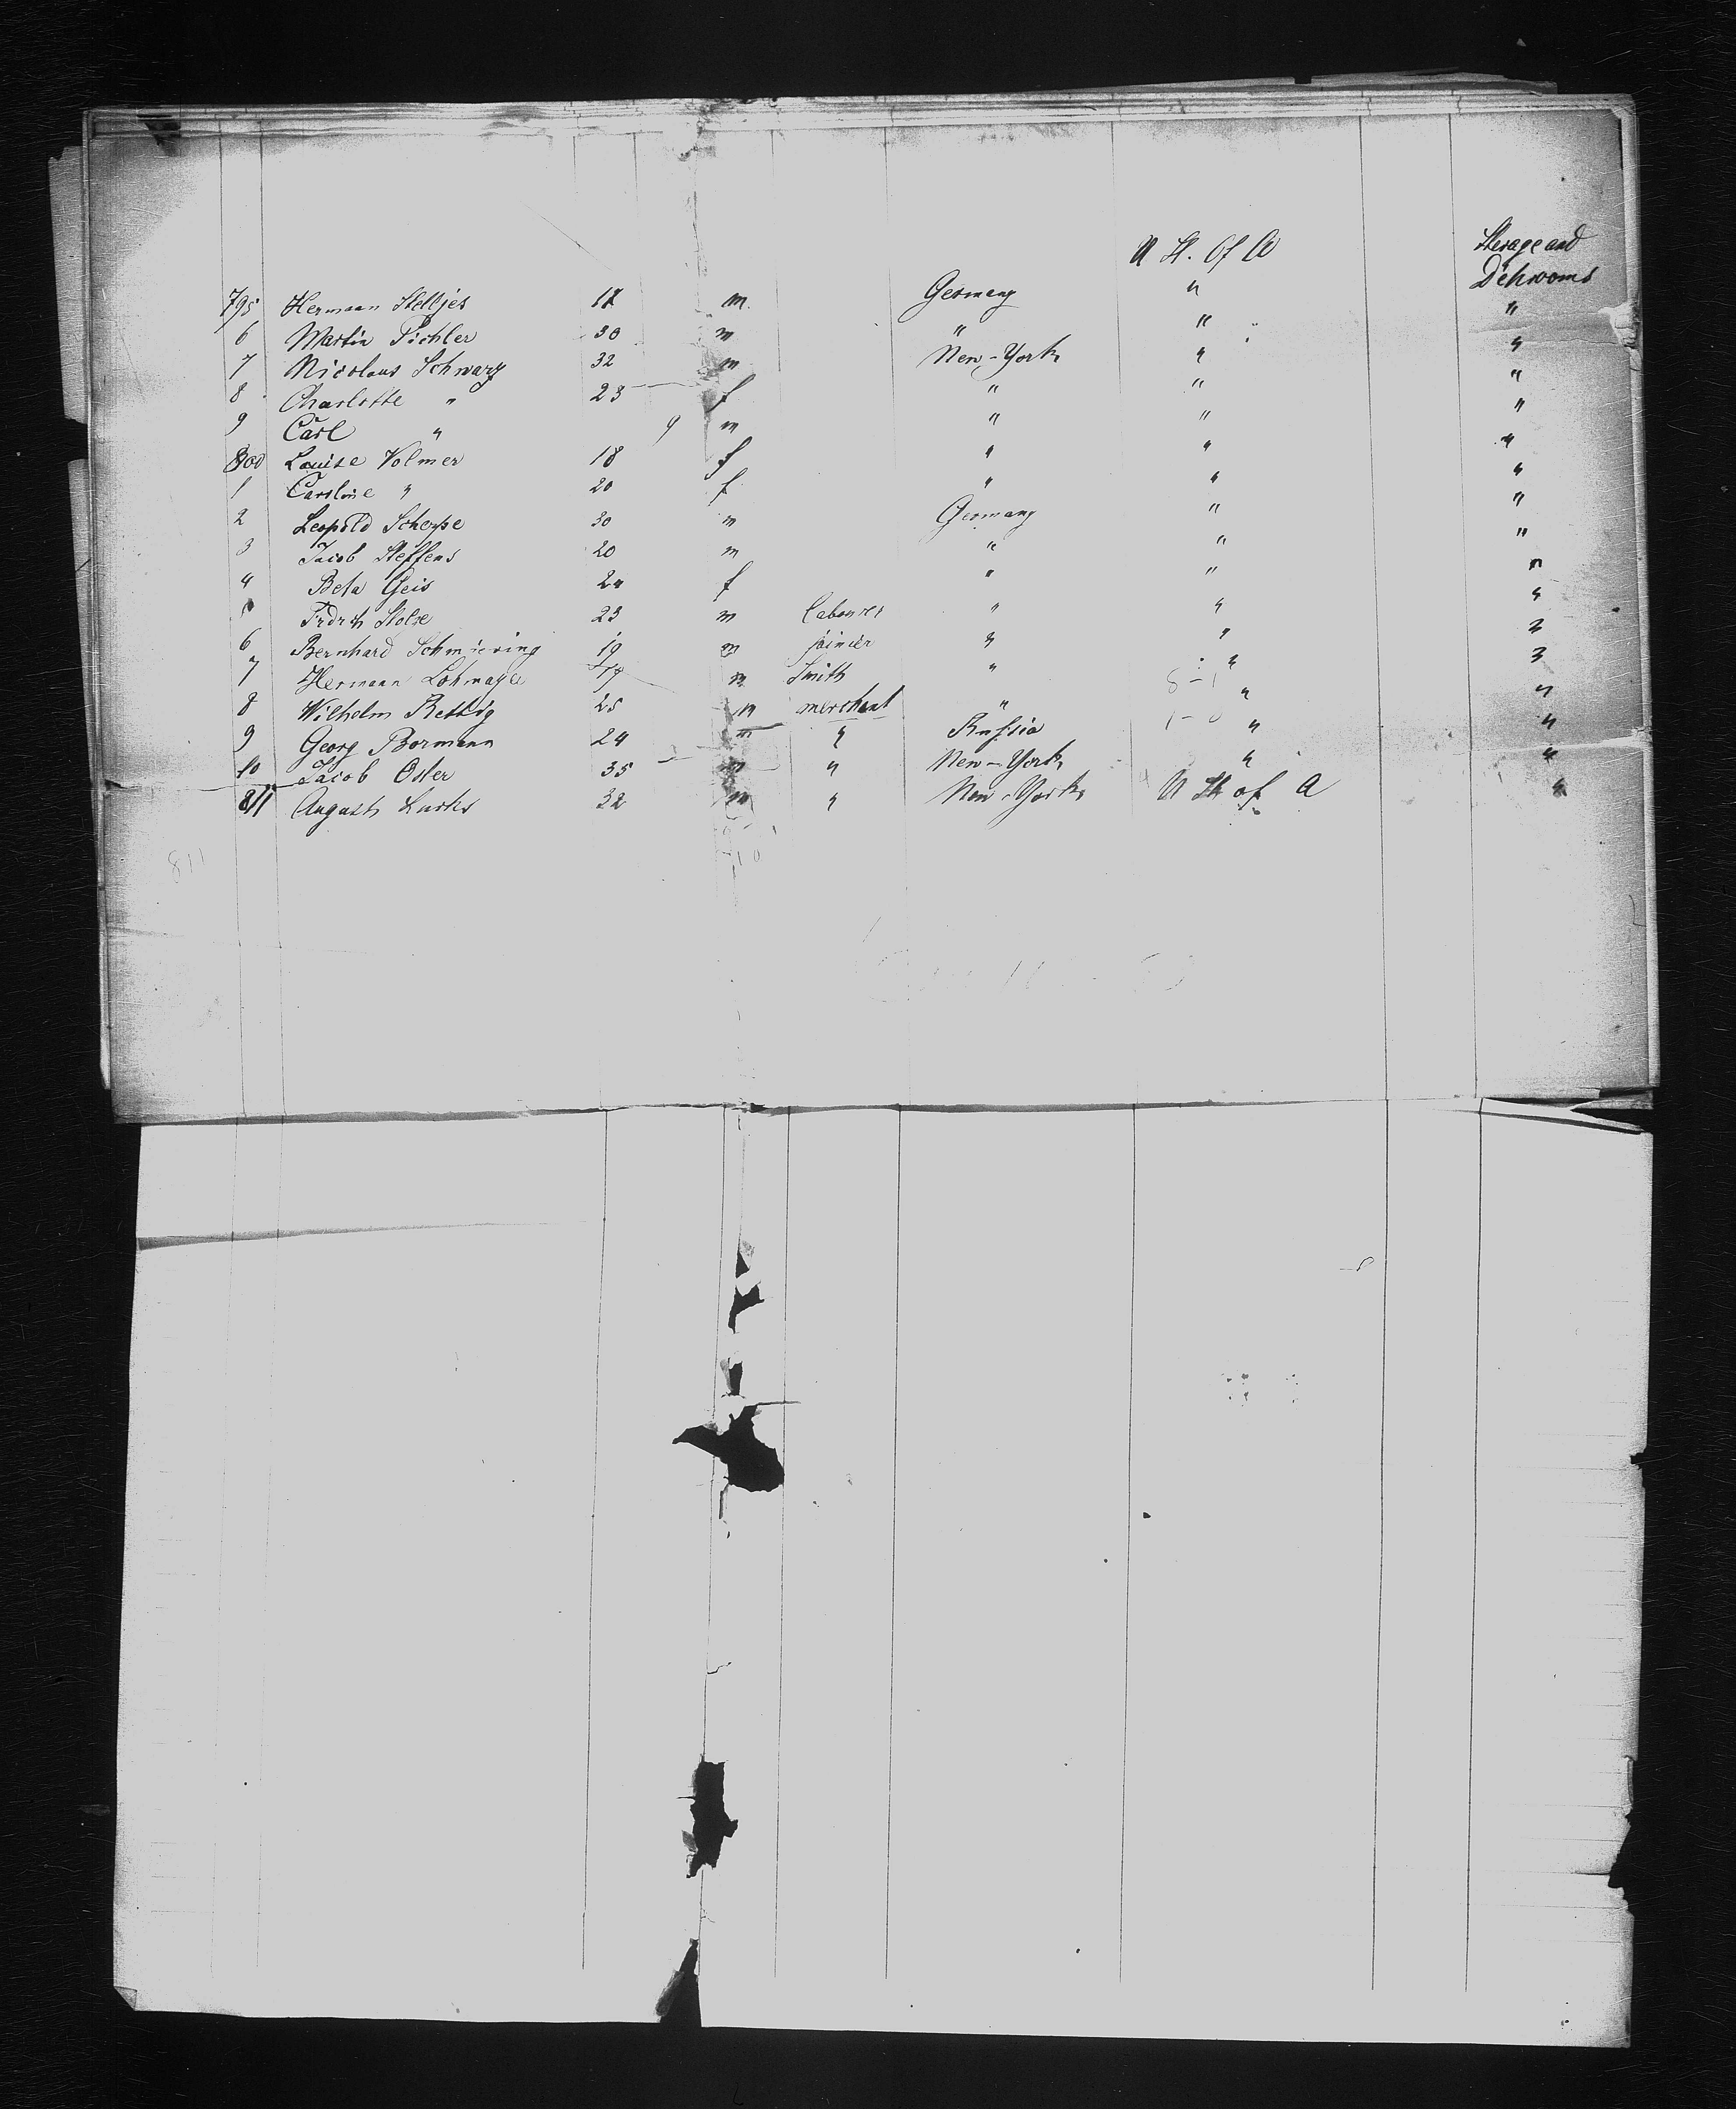 U St. Of A Sterage and
D'ehrooms
795 Hermann Stelljes 17 m. Germany " "
6 Martin Pichler 30 m " " "
7 Nicolaus Schwarz 32 m New-York " "
8 Charlotte " 23 f " " "
9 Carl " 9 m " " "
800 Louise Volmer 18 f " " "
1 Caroline " 20 f " " "
2 Leopold Schepse 30 m Germany " "
3 Jacob Steffens 20 m " " "
4 Beta Geis 24 f " " "
Frdrch Stolze 23 m labourer " " "
6 Bernhard Schmiering 19 m joinier " " "
7 Hermann Lohmayer 17 m Smith " " "
8 Wilhelm Rettig 25 m merchant " " "
9 Georg Bormann 24 m " Russia " "
10 Jacob Oster 35 m " New-York " "
811 August 32 m " New-York U St of A "
811